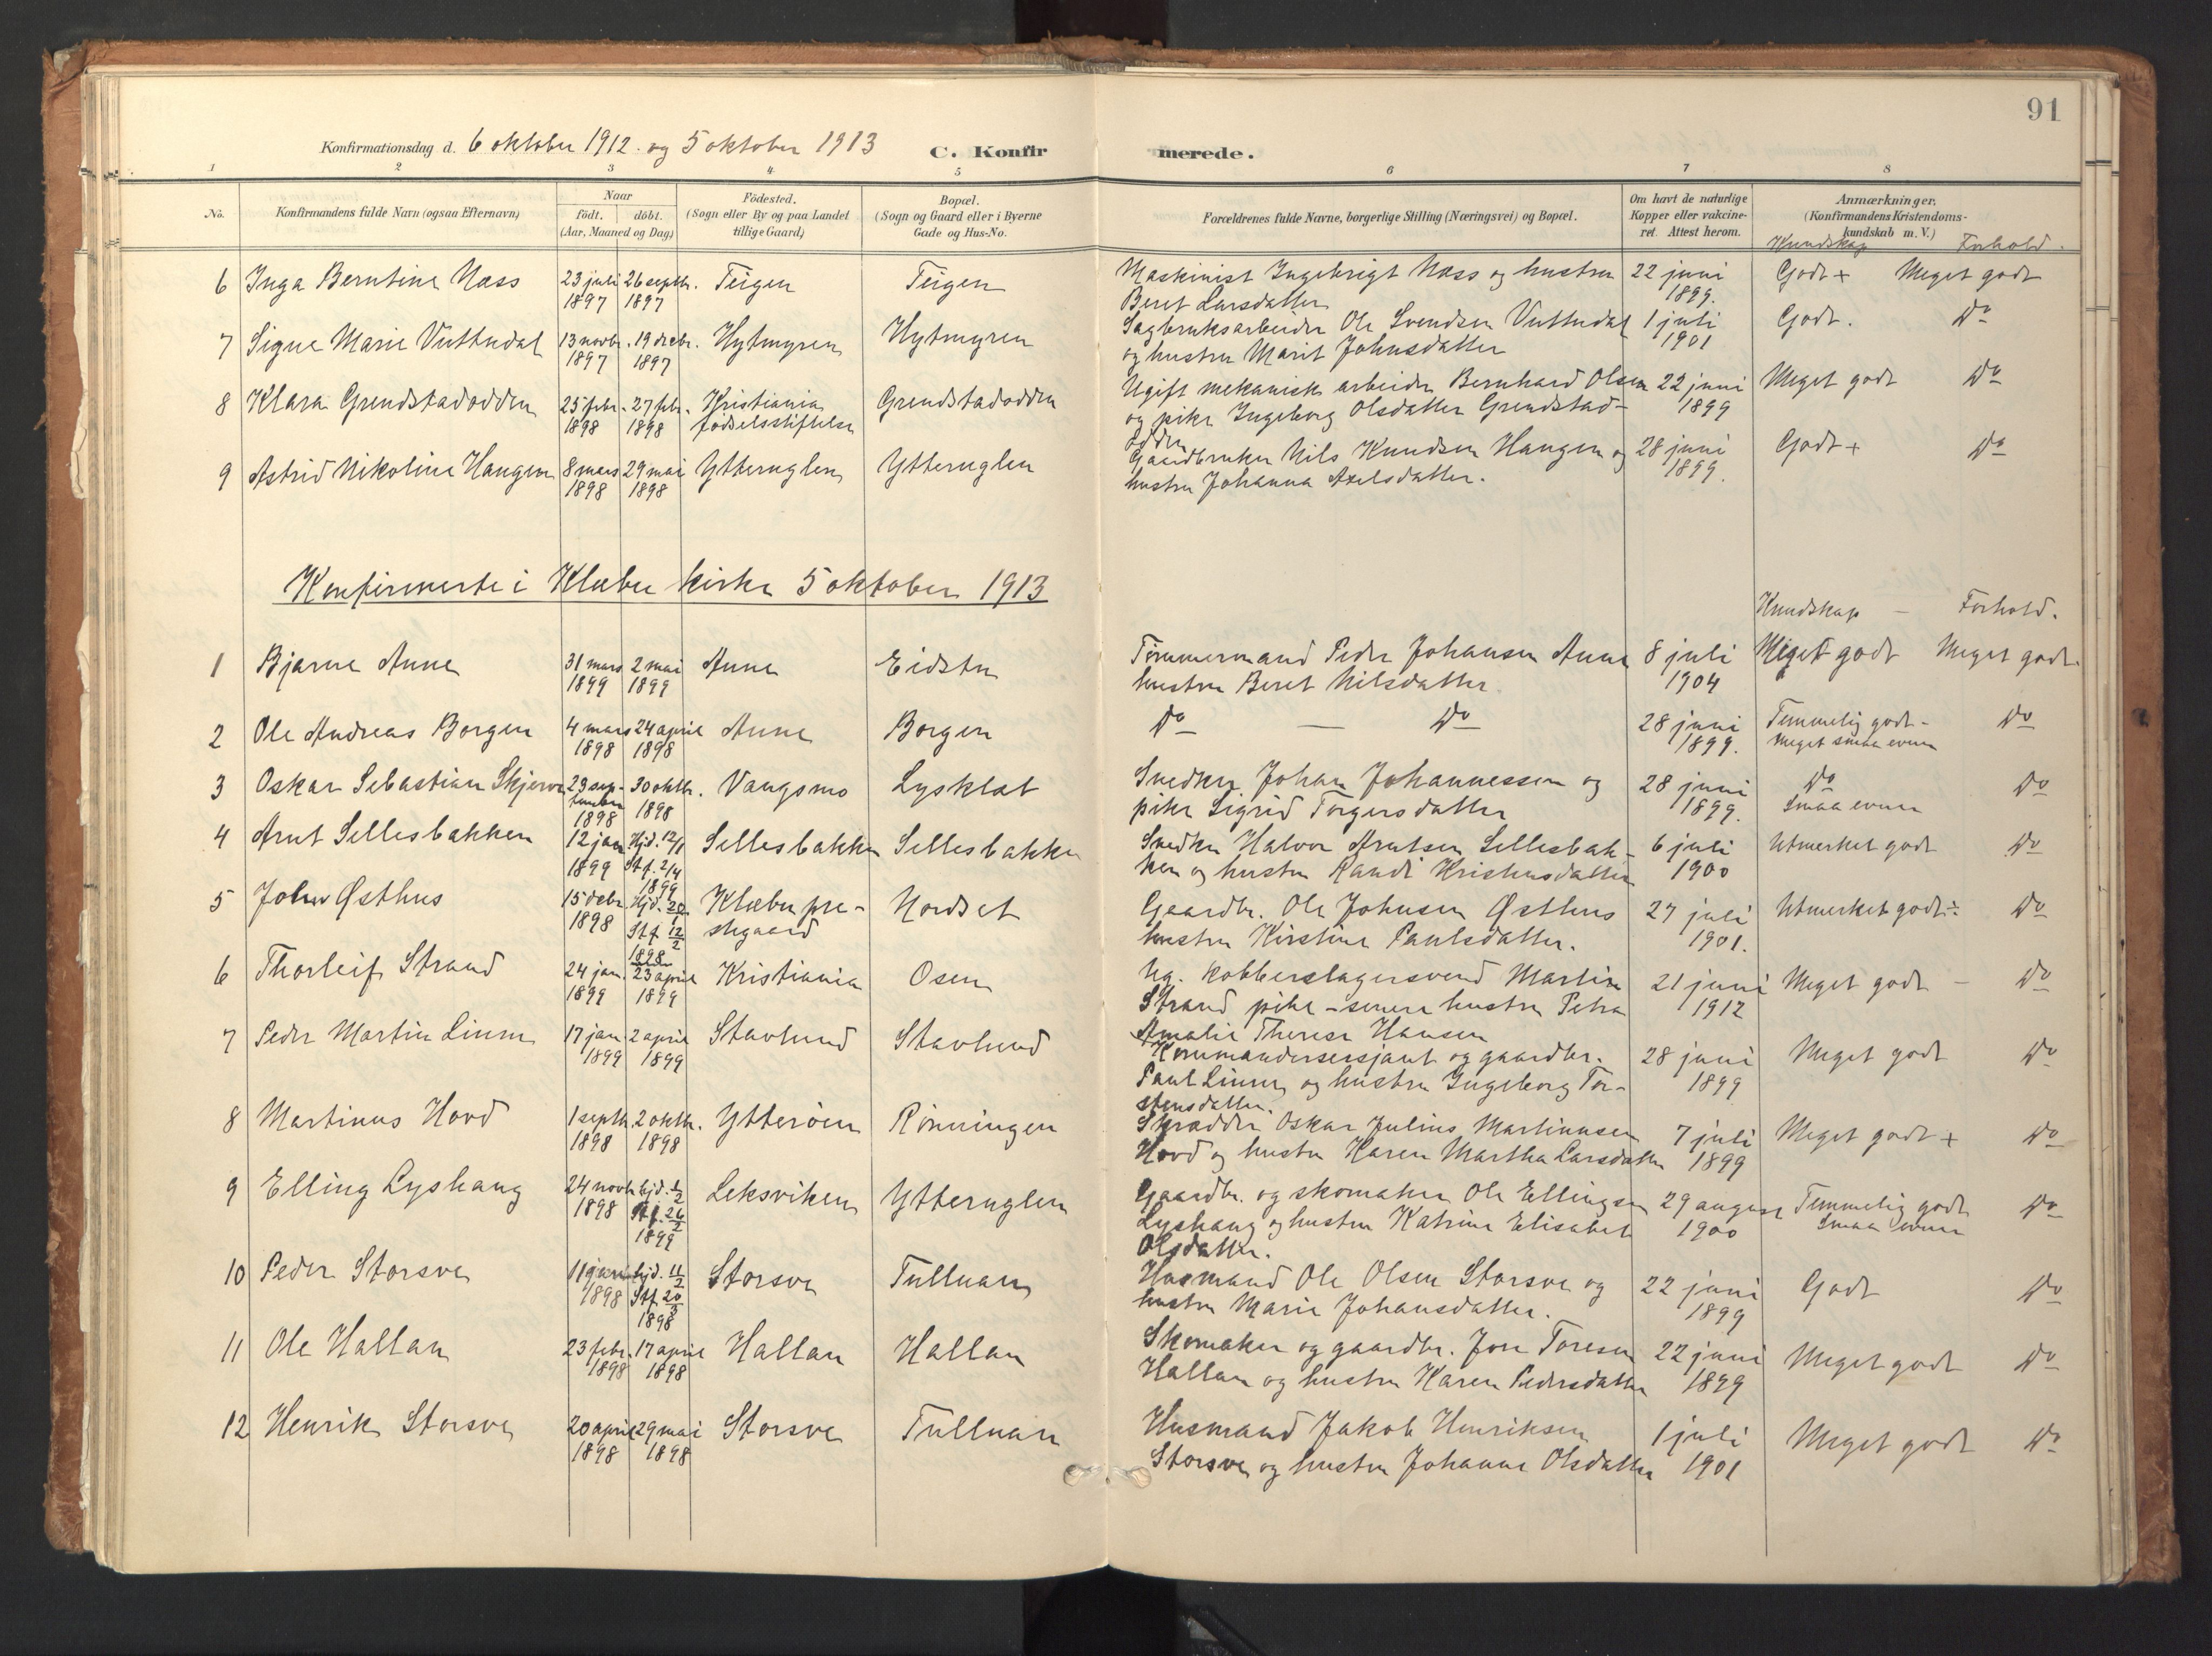 91
Konfirmationsdag d. 6 oktober 1912 og 5 oktober 1913 C. Konfirmerede.
1 2 3 4 5 6 7 8
No. Konfirmandens fulde Navn (ogsaa Efternavn) Naar födt. döbt. (Aar, Maaned og Dag) Födested. (Sogn eller By og paa Landet tillige Gaard) Bopæl. (Sogn og Gaard eller i Byerne Gade og Hus-No. Forældrenes fulde Navne, borgerlige Stilling (Næringsvei) og Bopæl. Om havt de naturlige Kopper eller vakcineret. Attest herom. Anmærkninger. (Konfirmandens Kristendomskundskab m. V.)
Kundskap Forhold.
6 Inga Berntine Næss 23 juli 1897 26 septbr. 1897 Teigen Teigen Maskinist Ingebrigt Næss og hustru Beret Larsdatter 22 juni 1899. Godt + Meget godt
7 Signe Marie Vuttudal 13 novbr. 1897 19 decbr. 1897 Hytmyren Hytmyren Sagbruksarbeider Ole Svendsen Vuttudal og hustru Marit Johnsdatter 1 juli 1901 Godt. Do
8 Klara Grendstadodden 25 febr. 1898 27 febr. 1898 Kristiania fødselsstiftelse Grendstadodden Ugift mekanisk arbeider Bernhard Olsen og pike Ingeborg Olsdatter Grendstadodden 22 juni 1899 Meget godt Do
9 Astrid Nikoline Haugen 8 mars 1898 29 mai 1898 Ytteruglen Ytteruglen Gaardbruker Nils Knudsen Haugen og hustru Johanna Axelsdatter. 28 juni 1899. Godt + Do
Konfirmerte i Klæbu kirke 5 oktober 1913
Kundskap – Forhold.
1 Bjarne Aune 31 mars 1899 2 mai 1899 Aune Eidstu Tømmermand Peder Johansen Aune hustru Beret Nilsdatter 8 juli 1904 Meget godt Meget godt.
2 Ole Andreas Borgen 4 mars 1898 24 april 1898 Aune Borgen Do — Do 28 juni 1899. Temmelig godt - meget smaa evner Do
3 Oskar Sebastian Skjerve 29 september 1898 30 oktbr. 1898 Vangsmo Lysklæt Snedker Johan Johannessen og pike Sigrid Torgersdatter 28 juni 1899. Do Smaa evner Do
4 Arnt Sellesbakken 12 jan 1899 Hjd. 12/1 Stf. 2/4 1899 Sellesbakken Sellesbakken Snedker Halvor Arntsen Sellesbakken og hustru Randi Kristensdatter 6 juli 1900 Utmerket godt Do
5 John Østhus 15 decbr. 1898 Hjd. 20/1 Stf. 12/2 1898 Klæbu prestegaard Nordset Gaardbr. Ole Johnsen Østhus hustru Kirstine Paulsdatter. 27 juli 1901. Utmerket godt ÷ Do
6 Thorleif Strand 24 jan. 1899 23 april 1899 Kristiania Osen Ug. kobberslagersvend Martin Strand pike – senere hustru Petra Amalie Therese Hansen 21 juni 1912 Meget godt – Do
7 Peder Martin Lium 17 jan 1899 2 april 1899 Stavlund Stavlund Kommandersersjant og gaardbr. Paul Lium og hustru Ingeborg Torstensdatter. 28 juni 1899 Meget godt Do
8 Martinus Hovd 1 septbr. 1898 2 oktbr. 1898 Ytterøen Rønningen Skrædder Oskar Julius Martinusen Hovd og hustru Karen Martha Larsdatter 7 juli 1899 Meget godt + Do
9 Elling Lyshaug 24 novbr 1898 hjd. 1/2 Stf. 26/2 1899 Leksviken Ytteruglen Gaardbr. og skomaker Ole Ellingsen Lyshaug og hustru Katrine Elisabet Olsdatter. 29 august 1900 Temmelig godt Smaa evner Do
10 Peder Storsve 11 jan 1898 hjd. 11/2 Stf. 20/3 1898 Storsve Tulluan Husmand Ole Olsen Storsve og hustru Marie Johansdatter. 22 juni 1899 Godt Do
11 Ole Hallan 23 febr. 1898 17 april 1898 Hallan Hallan Skomaker og gaardbr. Jon Toresen Hallan og hustru Karen Pedersdatter 22 juni 1899 Meget godt Do
12 Henrik Storsve 20 april 1898 29 mai 1898 Storsve Tulluan Husmand Jakob Henriksen Storsve og hustru Johanne Olsdatter 1 juli 1901 Meget godt Do